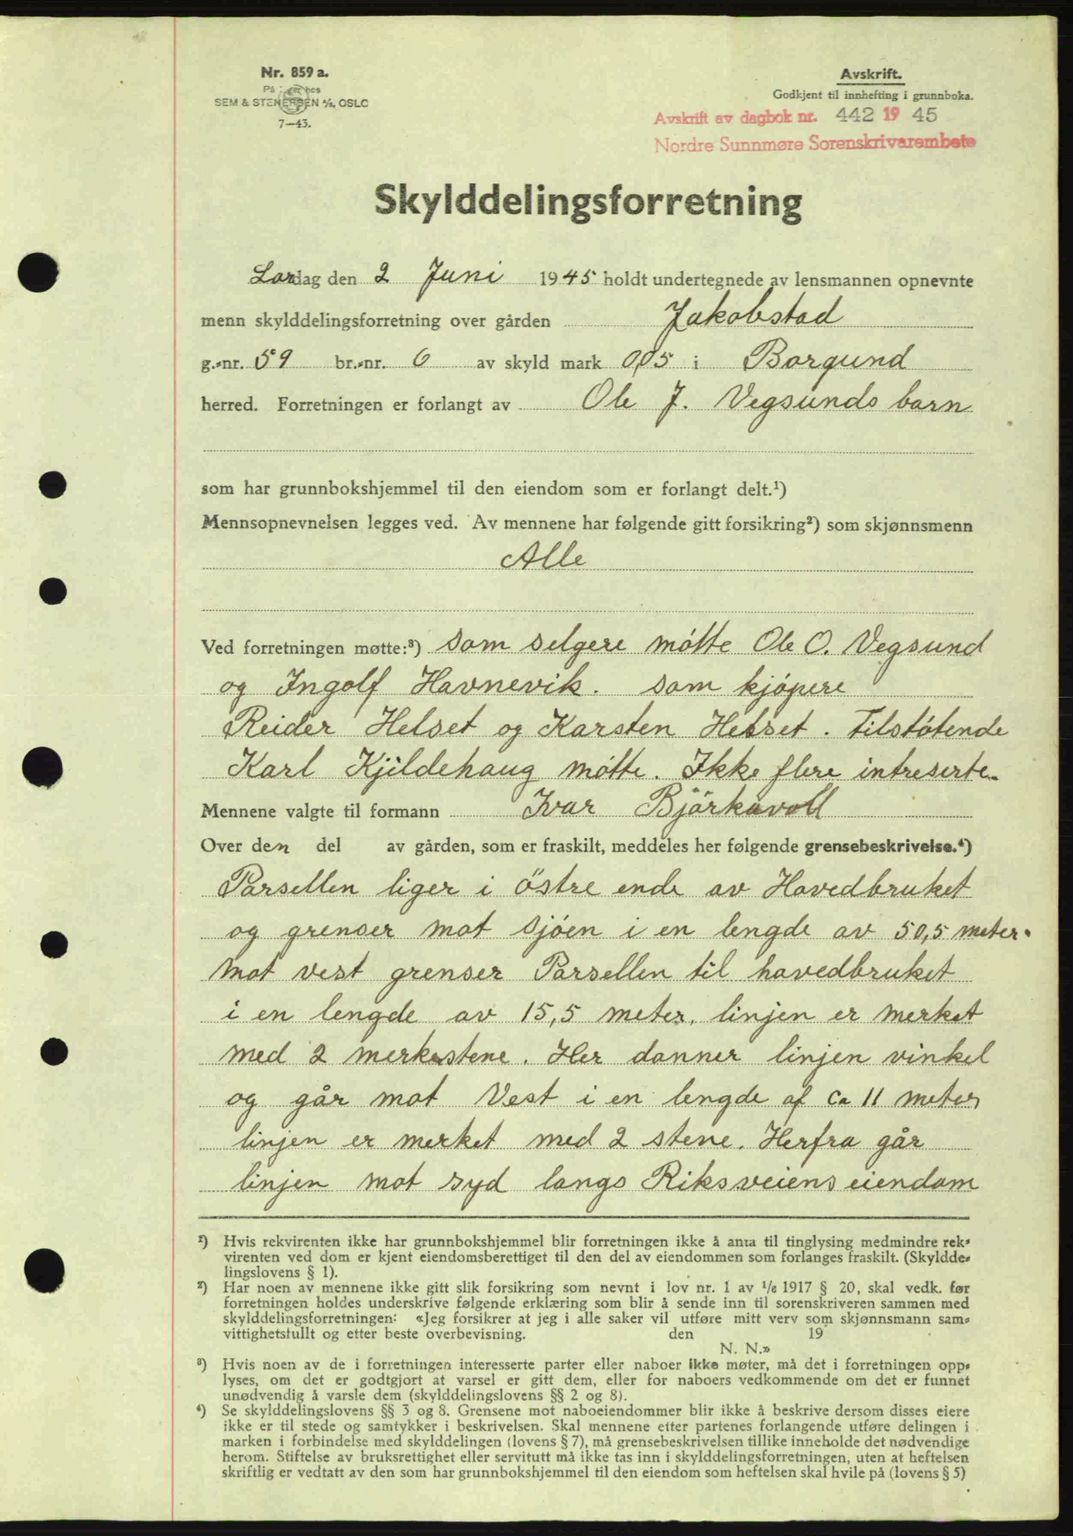 Nr. 859 a.
På lager hos
SEM & STENERSEN A/S, OSLO
7-43.
Avskrift.
Godkjent til innhefting i grunnboka.
Avskrift av dagbok nr. 442 19 45
Nordre Sunnmøre Sorenskrivarembete
Skylddelingsforretning
Lørdag den 2 Juni 1945 holdt undertegnede av lensmannen opnevnte
menn skylddelingsforretning over gården Jakobstad
g.-nr. 59 br.-nr. 6 av skyld mark 0,05 i Borgund
herred. Forretningen er forlangt av Ole J. Vegsunds barn
som har grunnbokshjemmel til den eiendom som er forlangt delt.¹)
Mennsopnevnelsen legges ved. Av mennene har følgende gitt forsikring²) som skjønnsmenn
Alle
Ved forretningen møtte:³) som selgere møtte Ole O. Vegsund
og Ingolf Havnevik. som kjøpere
Reider Helset og Karsten Helset. Tilstøtende
Karl Kjildehaug møtte. Ikke flere intreserte.
Mennene valgte til formann Ivar Björkavoll
Over den del av gården, som er fraskilt, meddeles her følgende grensebeskrivelse.⁴)
Parsellen liger i østre ende av Hovedbruket
og grenser mot sjøen i en lengde av 50,5 meter.
mot vest grenser Parsellen til hovedbruket
i en lengde av 15,5 meter. linjen er merket
med 2 merkestene. Her danner linjen vinkel
og går mot Vest i en lengde af ca 11 meter,
linjen er merket med 2 stene. Herfra går
linjen mot syd langs Riksveiens eiendom
¹) Hvis rekvirenten ikke har grunnbokshjemmel blir forretningen ikke å anta til tinglysing medmindre rek-
virenten ved dom er kjent eiendomsberettiget til den del av eiendommen som forlanges fraskilt. (Skyldde-
lingslovens § 1).
²) Har noen av mennene ikke gitt slik forsikring som nevnt i lov nr. 1 av 1/6 1917 § 20, skal vedk. før
forretningen holdes underskrive følgende erklæring som blir å sende inn til sorenskriveren sammen med
skylddelingsforretningen: «Jeg forsikrer at jeg i alle saker vil utføre mitt verv som skjønnsmann sam-
vittighetsfullt og etter beste overbevisning. den 19
N. N.»
³) Hvis noen av de i forretningen interesserte parter eller naboer ikke møter, må det i forretningen opp-
lyses, om det er godtgjort at varsel er gitt dem, eller for naboers vedkommende om det er funnet
unødvendig å varsle dem (skylddelingslovens §§ 2 og 8).
⁴) Se skylddelingslovens §§ 3 og 8. Grensene mot naboeiendommer blir ikke å beskrive dersom disses eiere
ikke er til stede og samtykker i beskrivelsen. Skal mennene etter partenes forlangende utføre delingen i
marken i forbindelse med skylddelingen (lovens § 7), må grensebeskrivelsen tillike inneholde det nødvendige
herom. Stiftelse av bruksrettighet eller servitutt må ikke tas inn i skylddelingsforretningen, uten at heftelsen
skriftlig er vedtatt av den som har grunnbokshjemmel til den eiendom som heftelsen skal hvile på (lovens § 5)